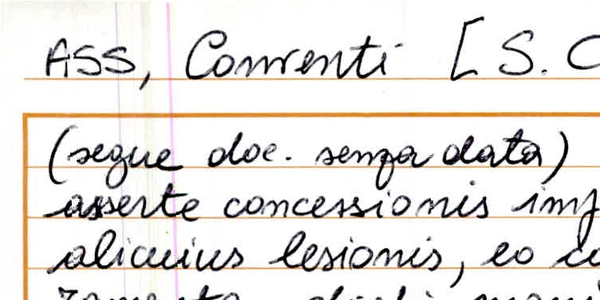 ASS, Conventi [S. C
(segue doc. senza data)
asserte concessionis imp
alicuius lesionis, eo co